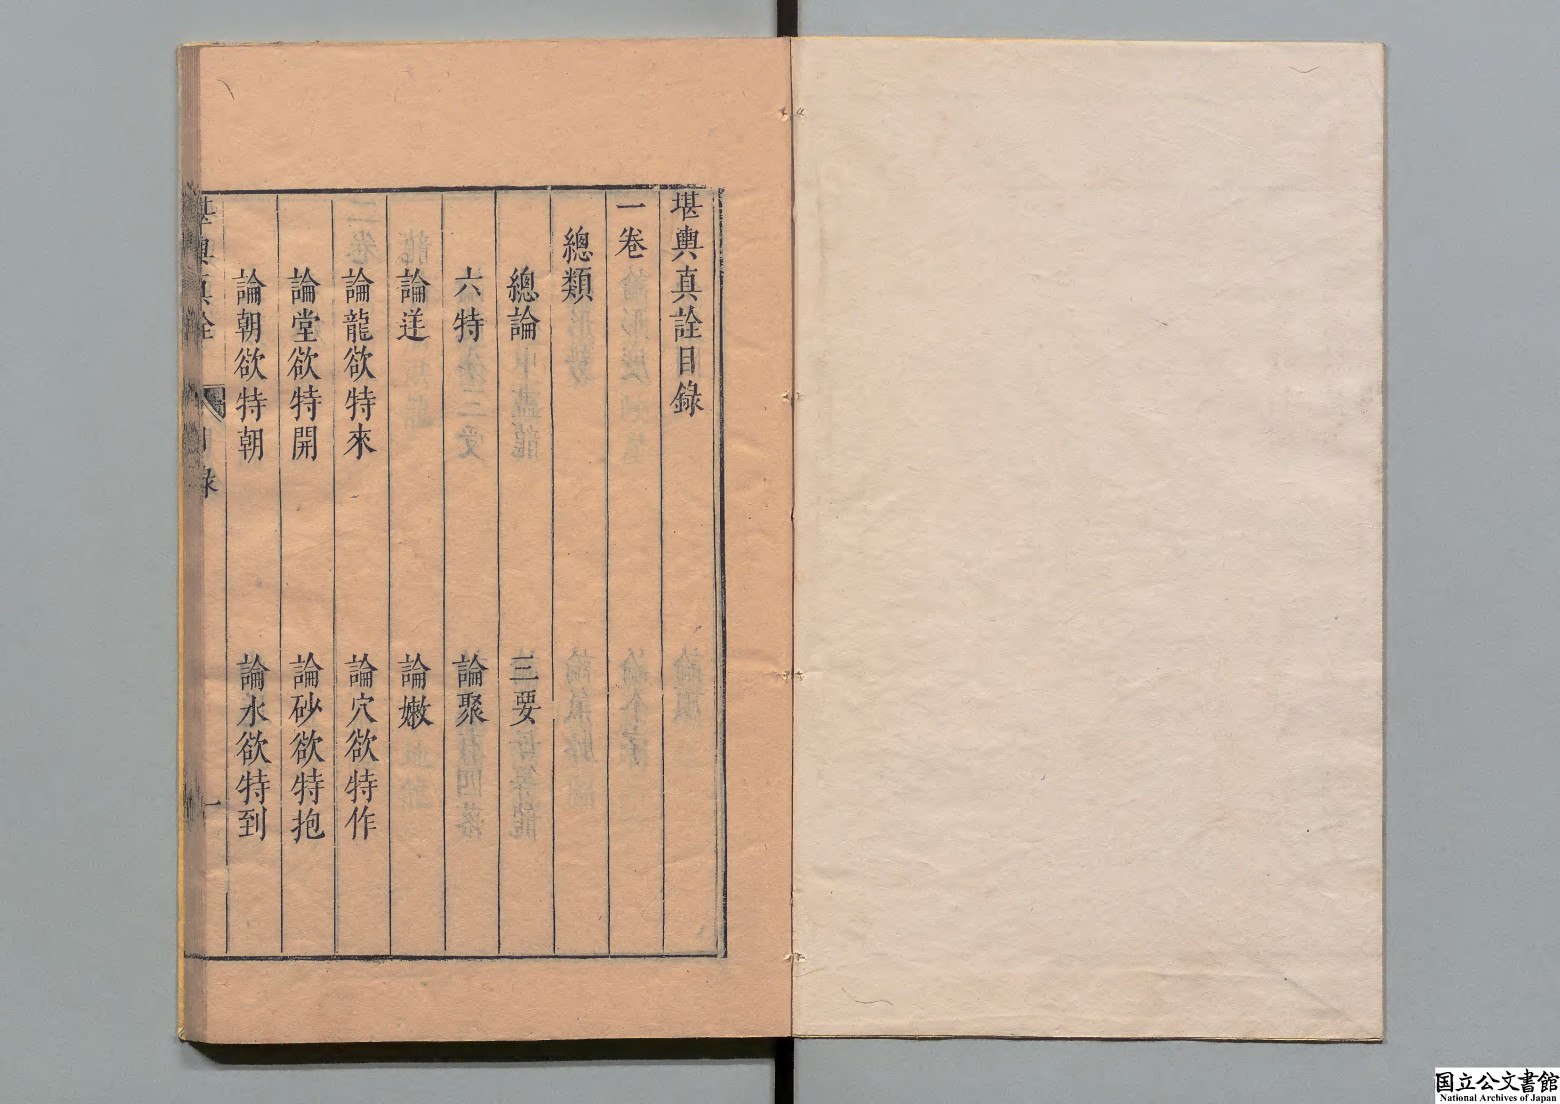 堪輿真詮目錄
一卷
總類
總論 三要
六特 論聚
論逆 論嫩
論龍欲特來 論穴欲特作
論堂欲特開 論砂欲特抱
論朝欲特朝 論水欲特到
堪輿真詮 目錄 一
国立公文書館
National Archives of Japan